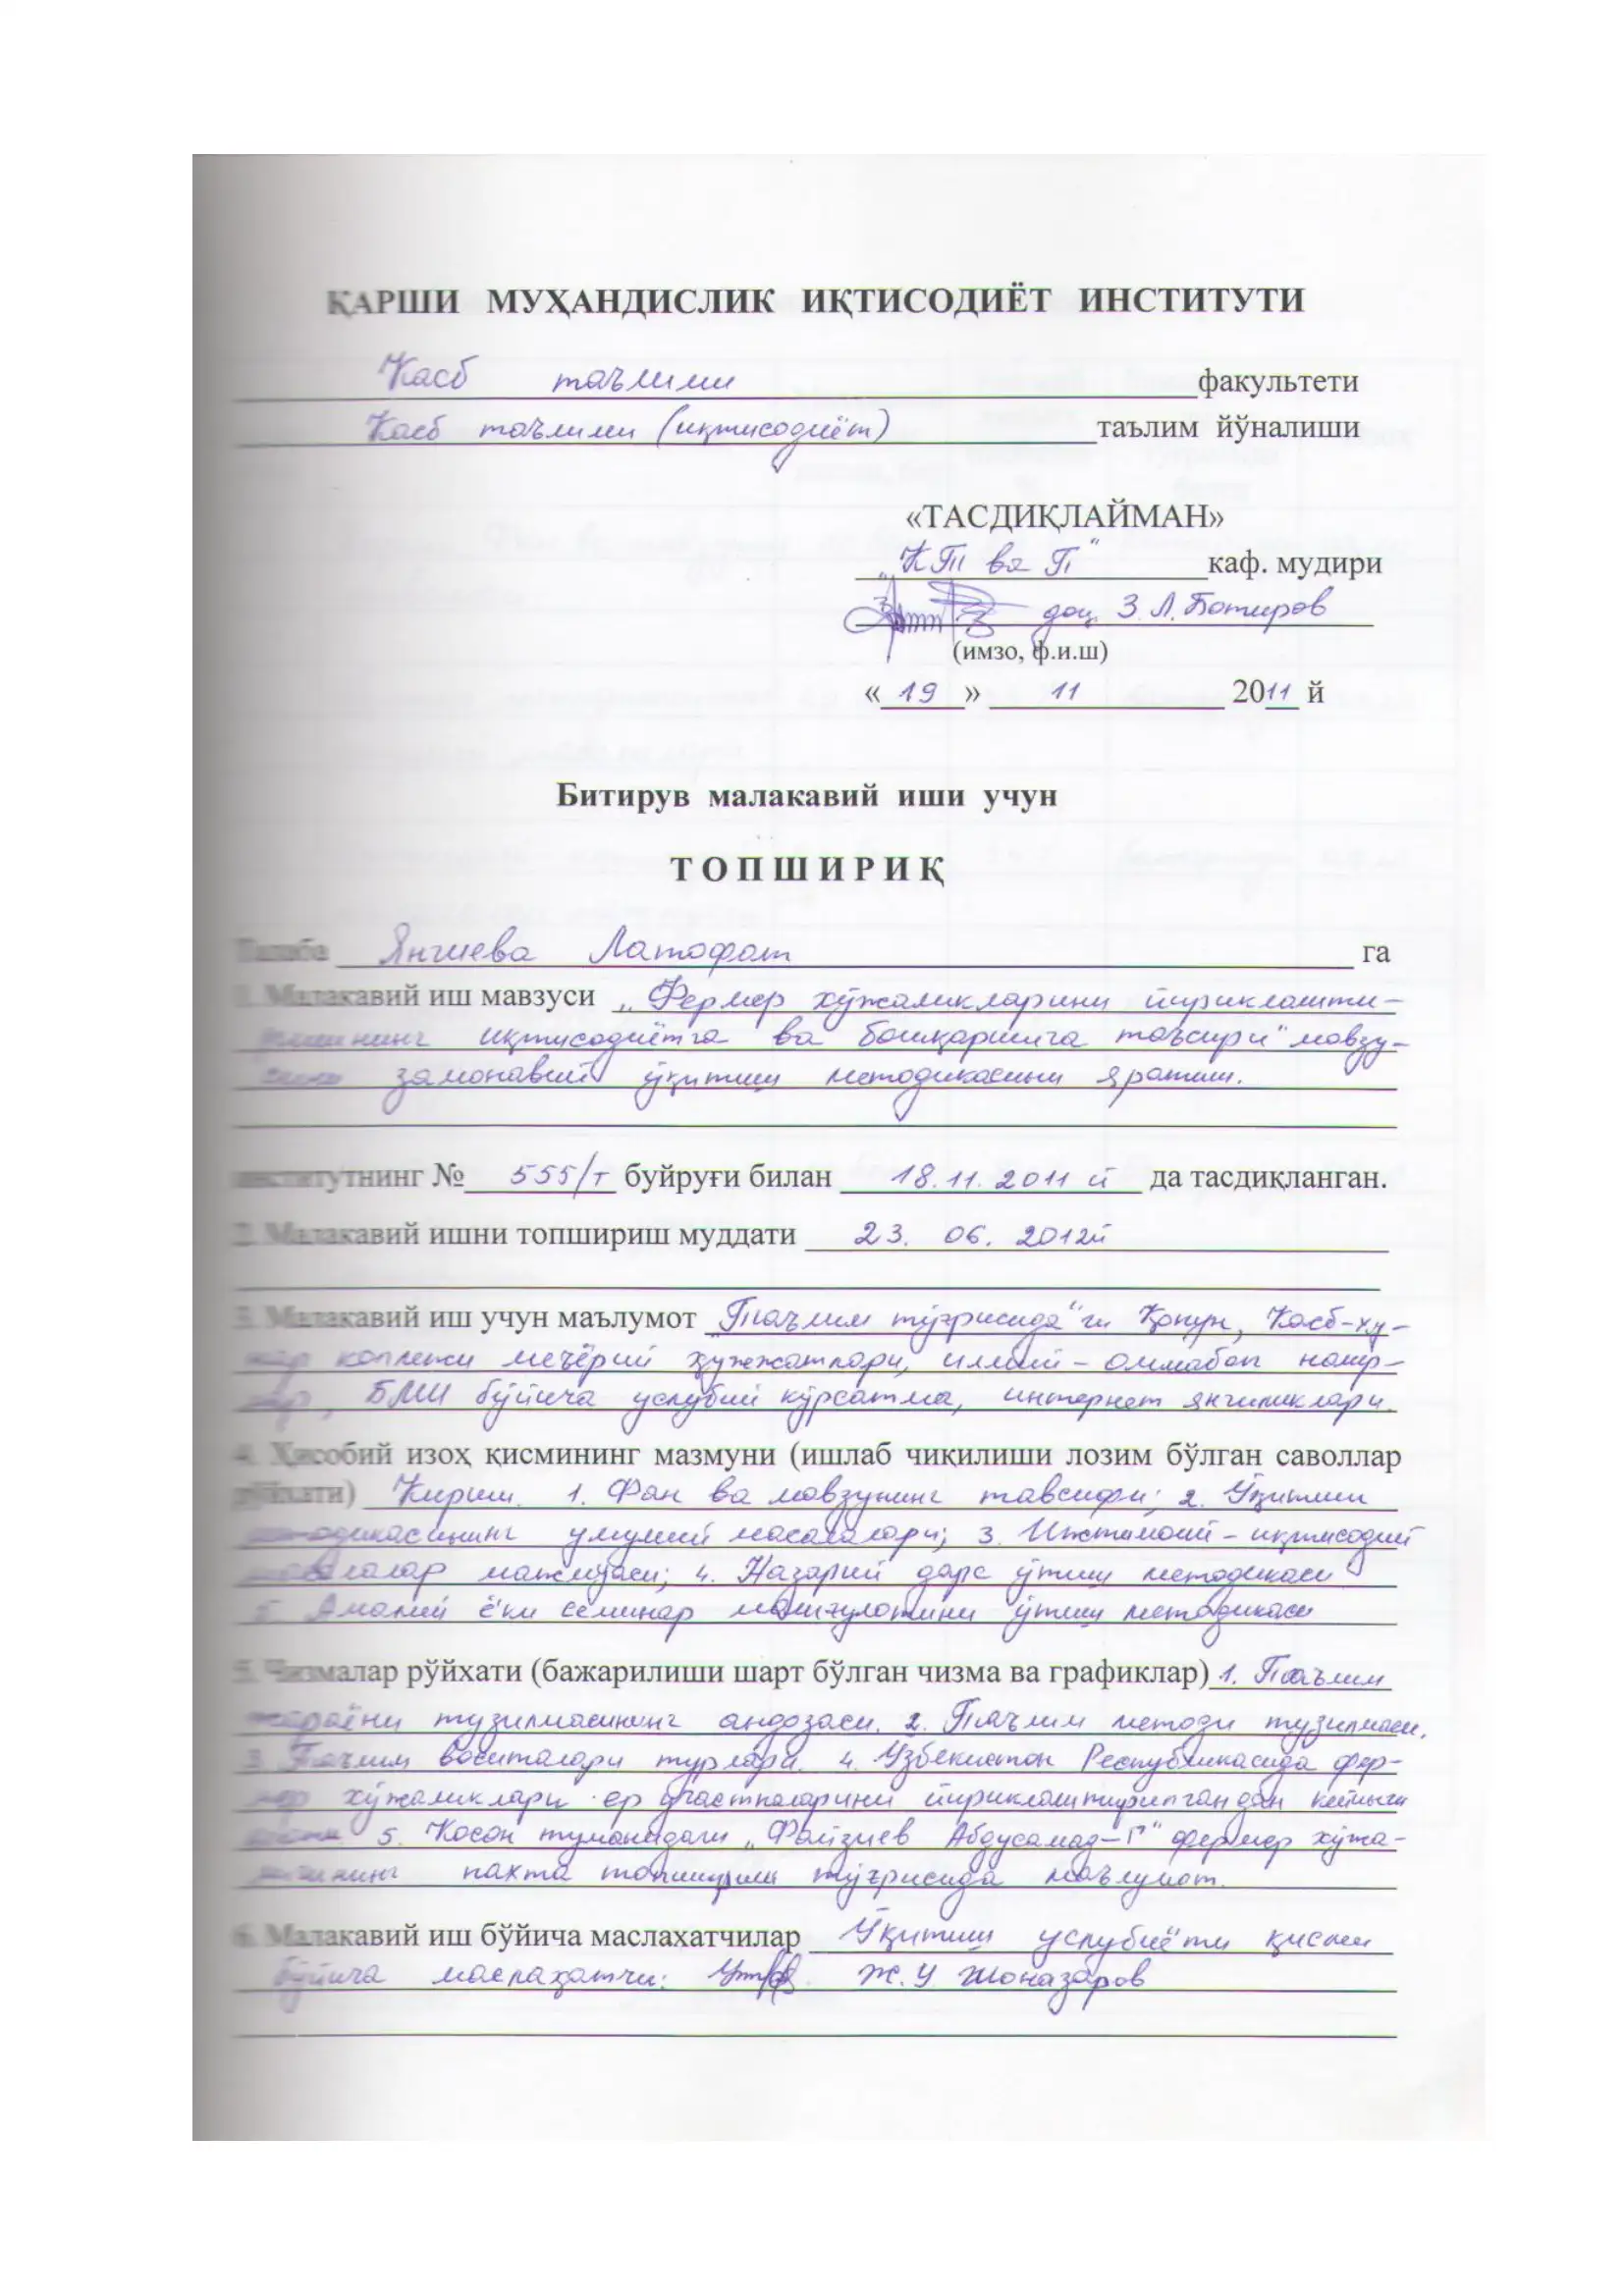 ҚАРШИ МУҲАНДИСЛИК ИҚТИСОДИЁТ ИНСТИТУТИ
Касб таълими факультети
Касб таълими (иқтисодиёт) таълим йўналиши
«ТАСДИҚЛАЙМАН»
„КТ ва П“ каф. мудири
доц. З.Л. Ботиров
(имзо, ф.и.ш)
«19» 11 2011 й
Битирув малакавий иши учун
ТОПШИРИҚ
Талаба Янгиева Латофат га
1. Малакавий иш мавзуси „Фермер хўжаликларини йириклашти-
ришнинг иқтисодиётга ва бошқаришга таъсири“ мавзу-
замонавий ўқитиш методикасини яратиш.
институтнинг № 555/т буйруғи билан 18.11.2011 й да тасдиқланган.
2. Малакавий ишни топшириш муддати 23. 06. 2012й
3. Малакавий иш учун маълумот „Таълим тўғрисида“ги Қонун, Касб-ҳу-
нар коллежи меъёрий ҳужжатлари, илмий-оммабоп нашр-
лар, БМИ бўйича услубий кўрсатма, интернет янгиликлари.
4. Ҳисобий изоҳ қисмининг мазмуни (ишлаб чиқилиши лозим бўлган саволлар
рўйхати) Кириш. 1. Фан ва мавзунинг тавсифи; 2. Ўқитиш
методикасининг умумий масалалари; 3. Ижтимоий-иқтисодий
масалалар мажмуаси; 4. Назарий дарс ўтиш методикаси
5. Амалий ёки семинар машғулотини ўтиш методикаси
5. Чизмалар рўйхати (бажарилиши шарт бўлган чизма ва графиклар) 1. Таълим
жараёни тузилмасининг андозаси. 2. Таълим методи тузилмаси.
3. Таълим воситалари турлари. 4. Ўзбекистон Республикасида фер-
мер хўжаликлари ер участкаларини йириклаштирилгандан кейинги
5. Косон туманидаги „Файзиев Абдусамад-Г“ фермер хўжа-
лигининг пахта топшириш тўғрисида маълумот.
6. Малакавий иш бўйича маслахатчилар Ўқитиш услубиёти қисми
бўйича маслаҳатчи: Ж.У Жоназаров